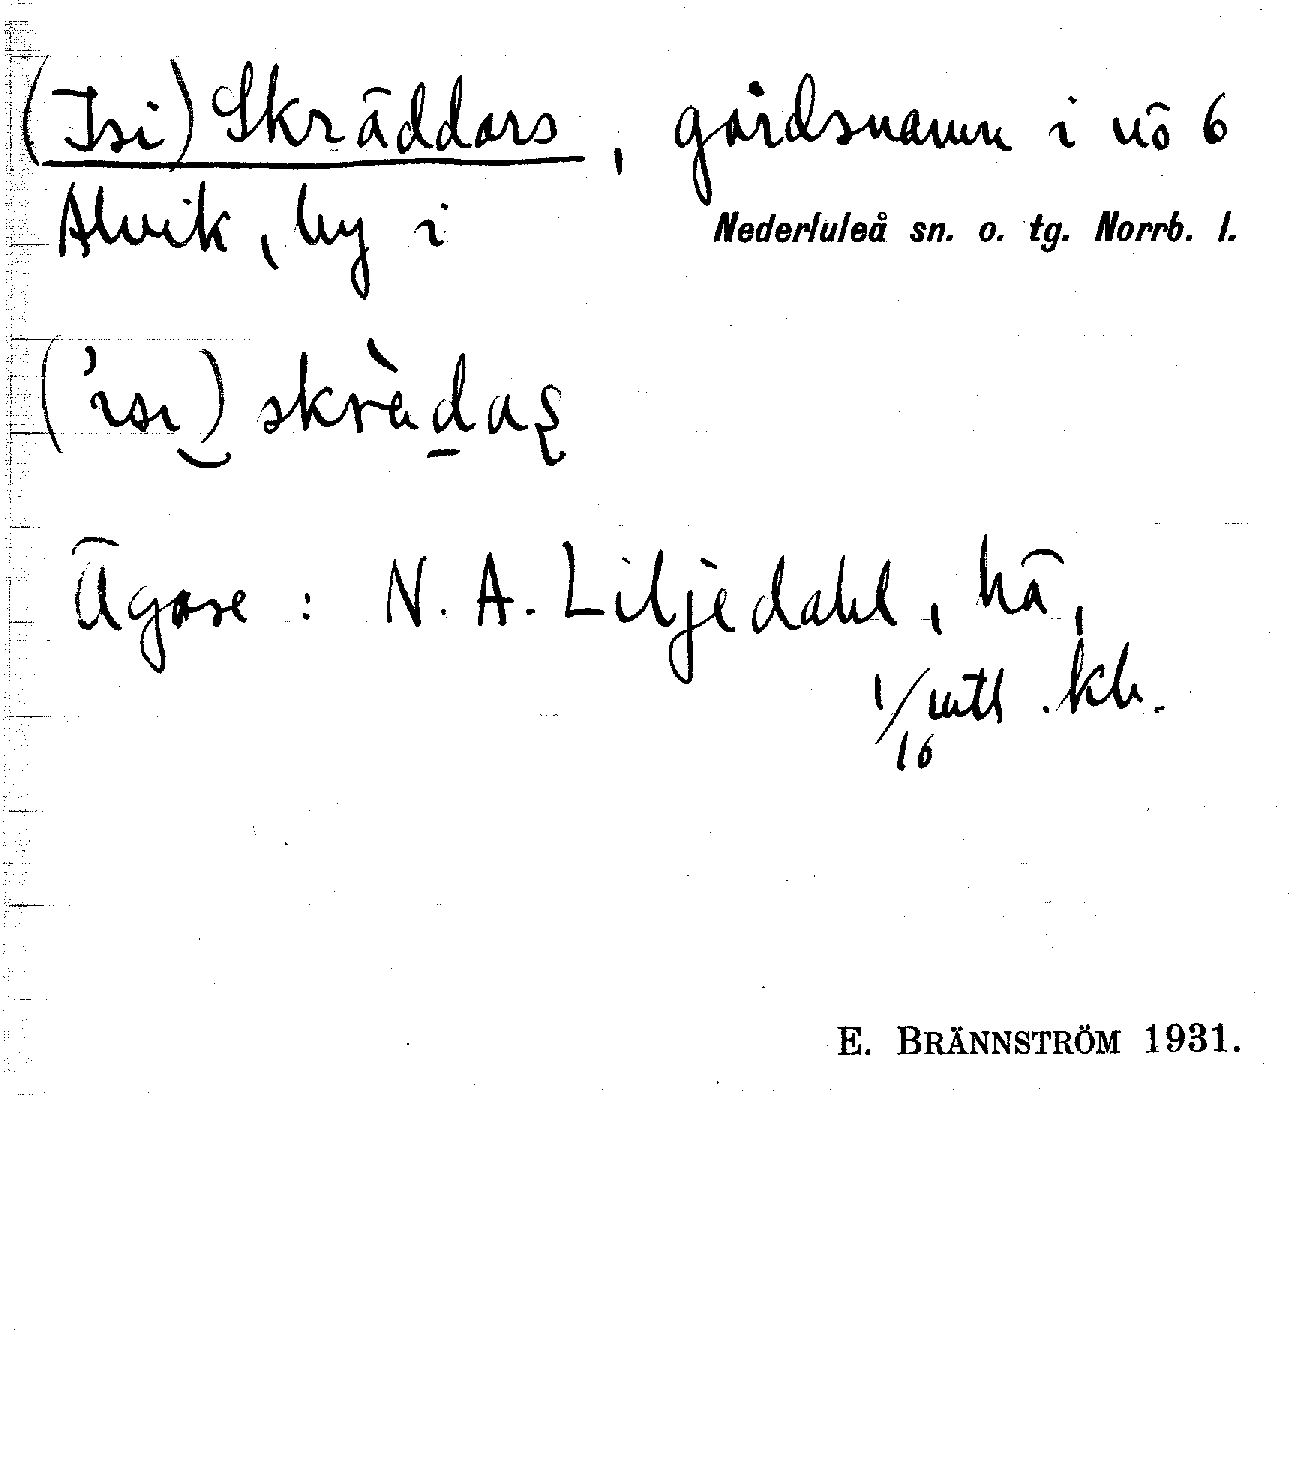 (Isi) Skräddars, gårdsnamn i nö 6
Alvik, by i Nederluleå sn. o. tg. Norrb. l.
('ısı) skrädaş
Ägare: N. A. Liljedahl, hä,
1/16 mtl. kh.
E. BRÄNNSTRÖM 1931.